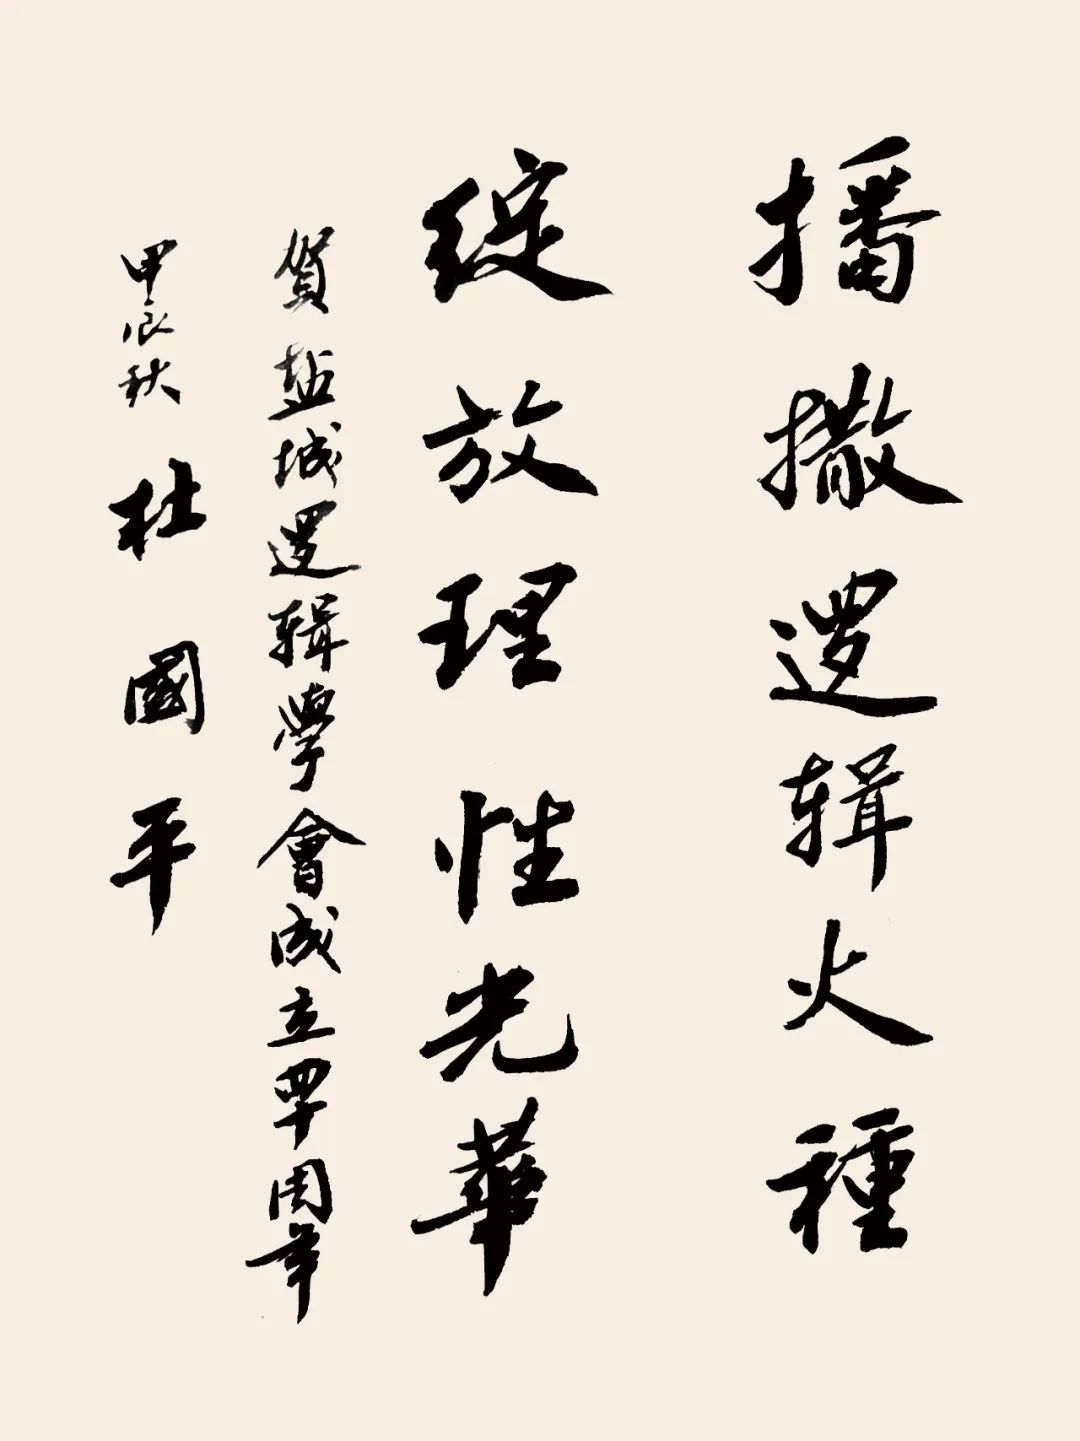 播撒逻辑火種
綻放理性光華
賀盐城逻辑學會成立四十周年
甲辰秋 杜國平